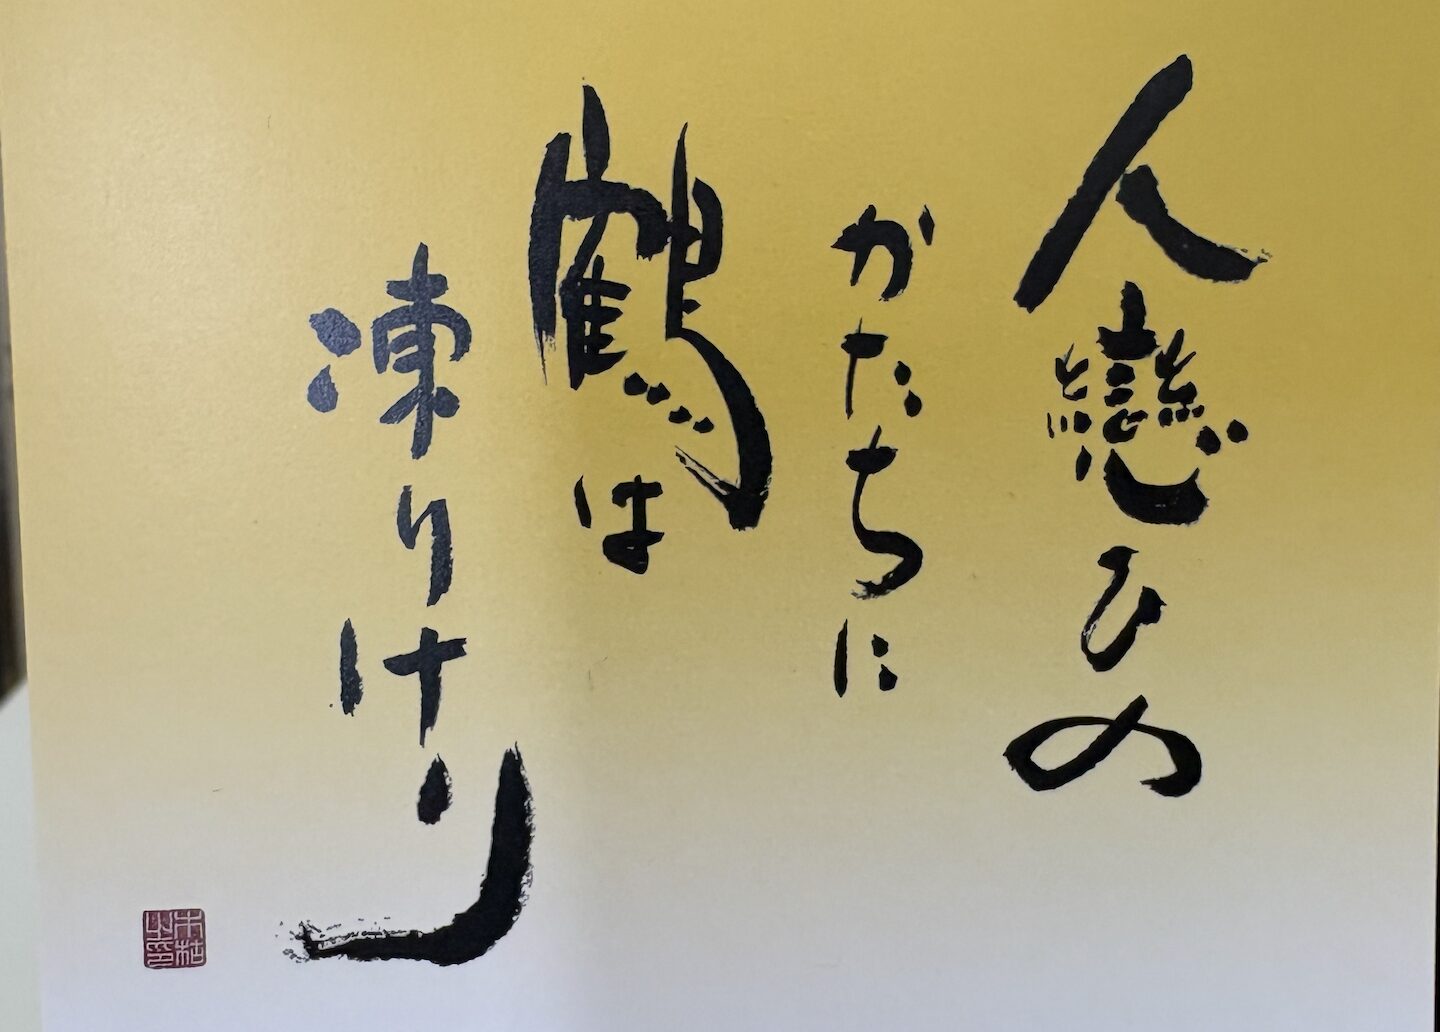 人戀ひの
かたちに
鶴は
凍りけり